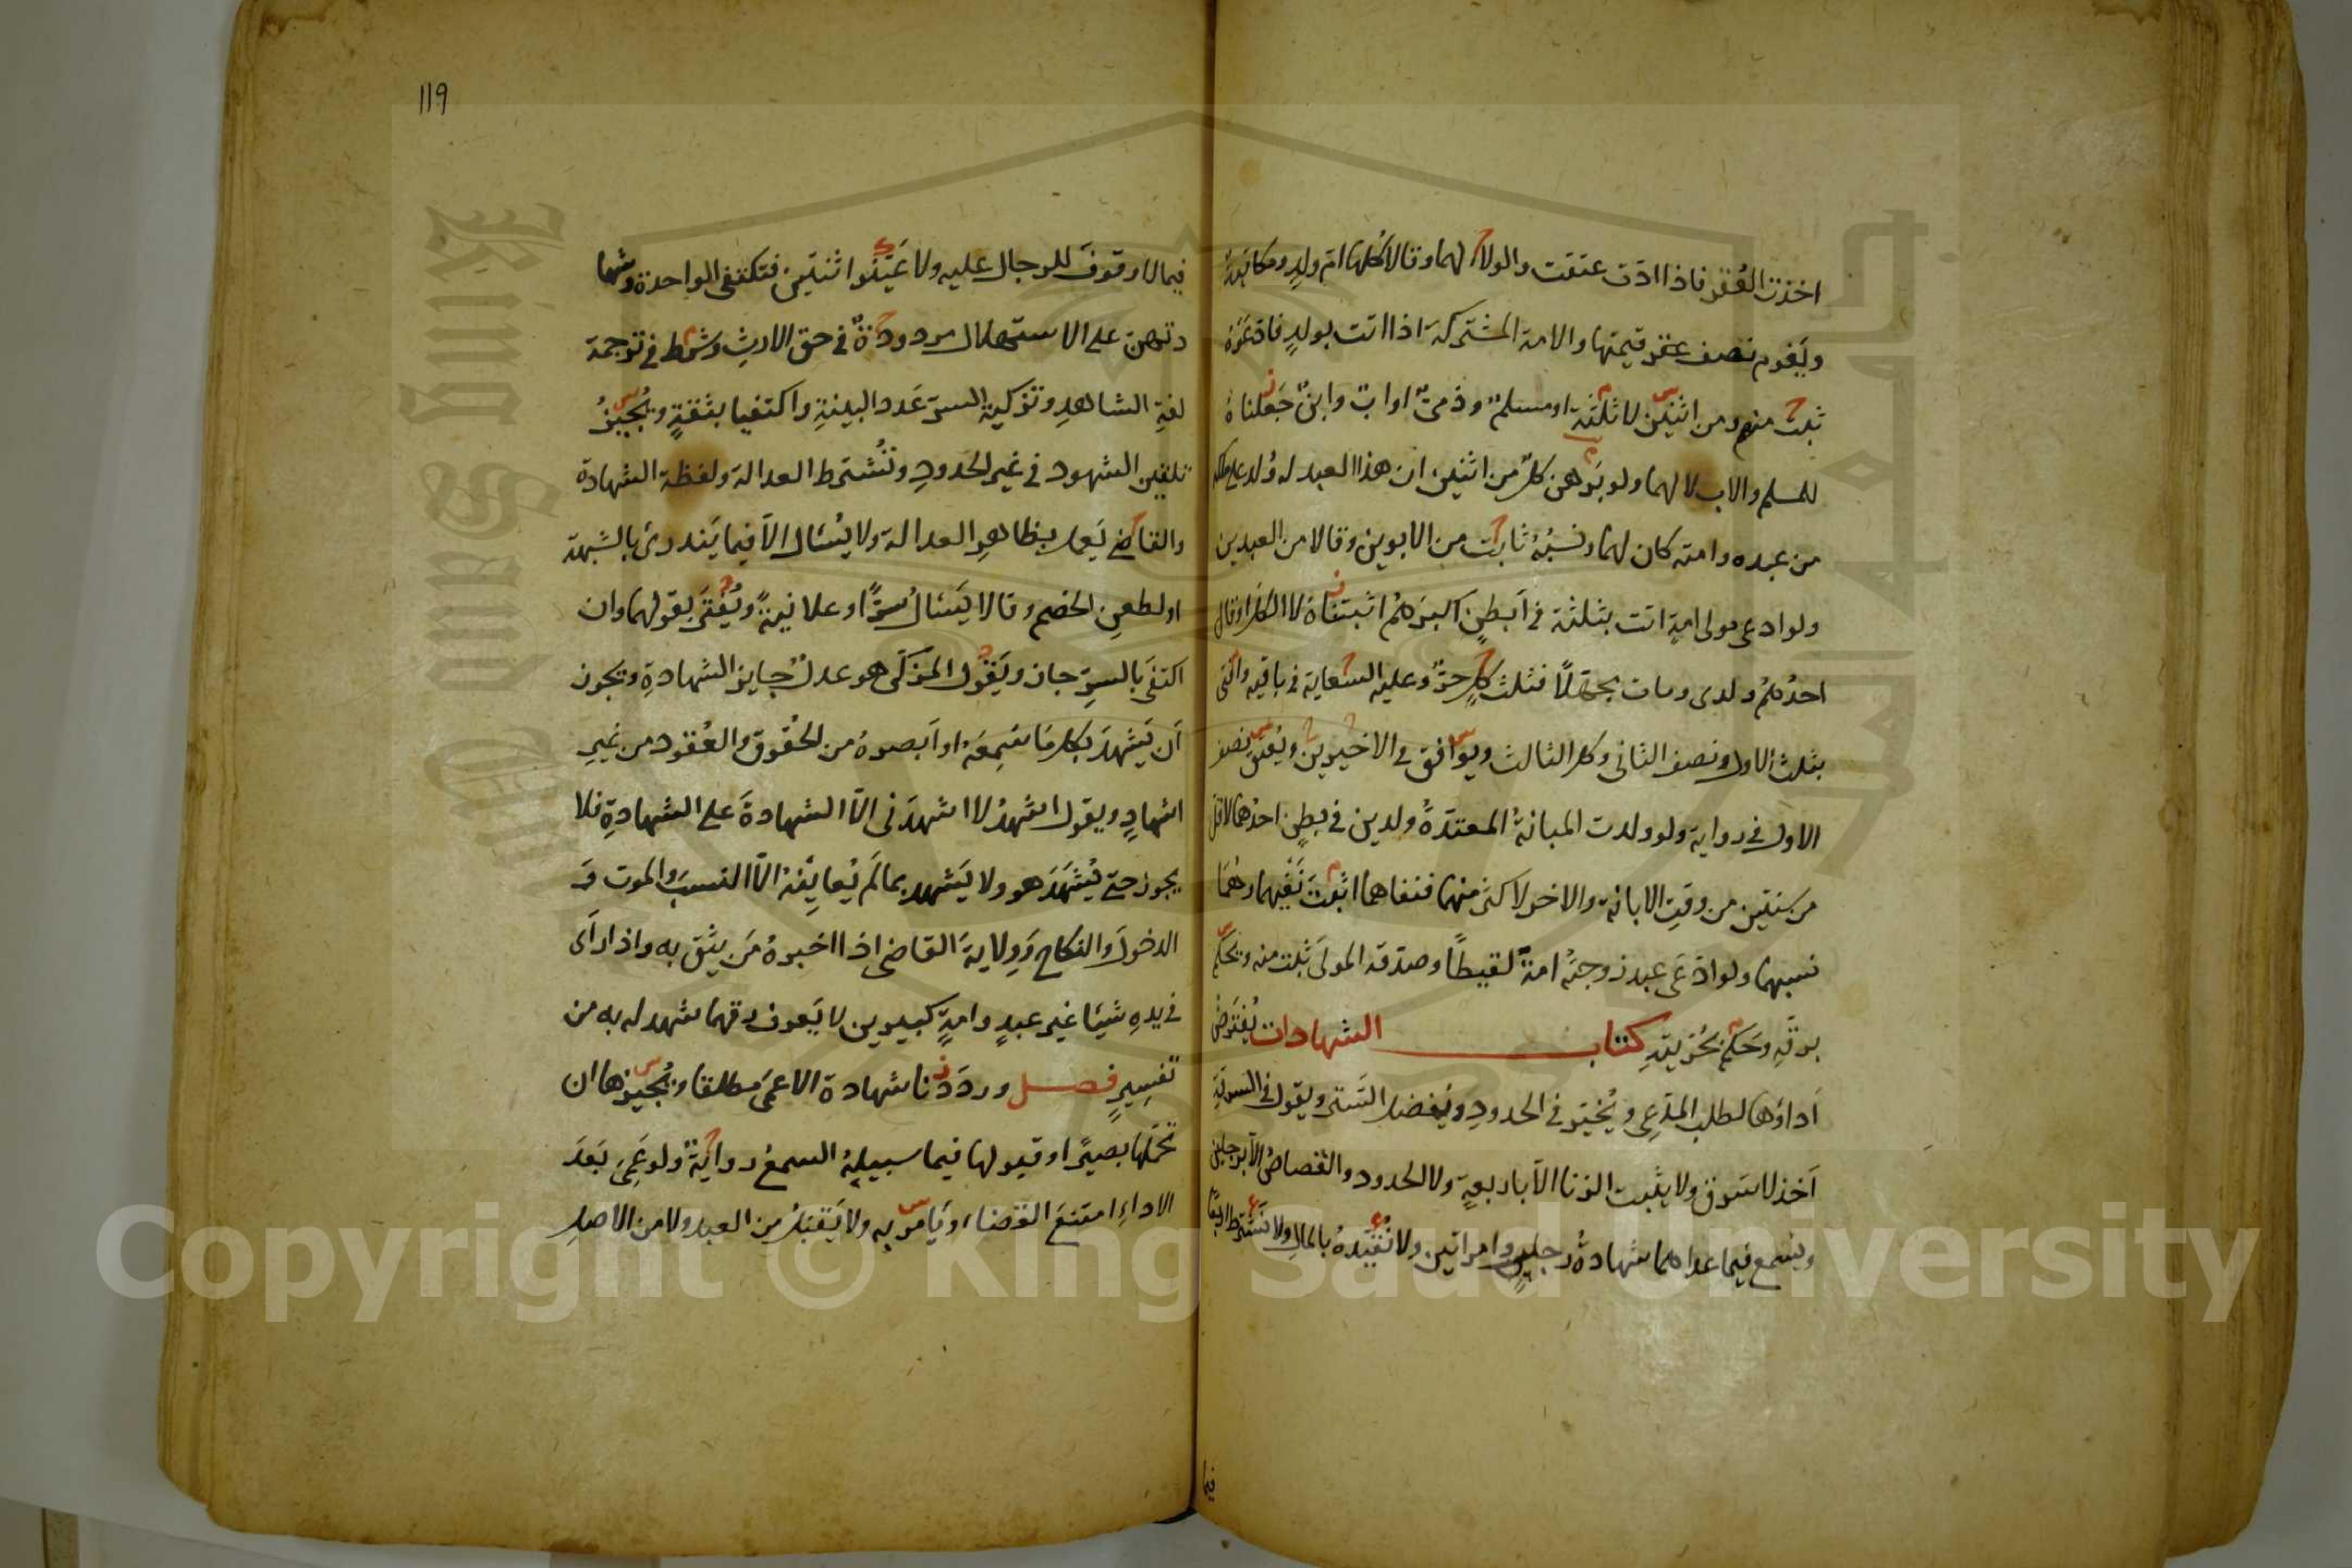 اخذت العُقر فاذا ادّت عتقت والولاء لهما وقالا كلها ام ولدٍ ومكاتبةٌ
ويَغرم نصف عقر قيمتها والامة المشتركة اذا اتت بولدٍ فادّعَوْهُ
ثبت منهم ومن اثنين لا ثلثة او مسلمٌ وذميٌّ او ابٌ وابنٌ جَعلناهُ
للمسلم والاب لا لهما ولو بَرهن كلٌّ من اثنين ان هذا العبد له وُلد على ملكه
من عبده وامته كان لهما ونسبُهُ ثابت من الابوين وقالا من العبدين
ولو ادعى مولى امةٍ اتت بثلثة في اَبطنٍ اكبرَهُم اثبتناهُ لا الكل او قال
احدُهُم ولدى ومات مجهّلاً فثلث كلٍ حرٌّ وعليه السعاية في باقيه وافتى
بثلث الاول ونصف الثانى وكل الثالث ويوافق في الاخيرين ويُعتق نصف
الاول في رواية ولو ولدت المبانةُ المعتدّةُ ولدين في بطنٍ احدُهما لاقل
من سنتين من وقتِ الابانة والاخر لاكثر منهما فنفاهما اثبتَ نَفيَهما وهُمَا
نسبهما ولو ادّعَى عبد زوجتُهُ امةٌ لقيطًا وصدّقه المولَى ثبت منه ويحكم
برقّهِ وحَكم بحُرّيتهِ كتاب الشهادات يُفترَضُ
اَداؤها لطلب المدّعِى ويُخيّر في الحدودِ ويُفضل السَّتر ويقول في السرقة
اَخذ لا سَرق ولا يثبت الزنا الّا باربعةٍ ولا الحدود والقصاصُ الّا برجلين
ويسمع فيما عداهما شهادةُ رجلينِ وامراتين ولا نُقيّدهُ بالمالِ ولا نَشترط اربعًا
فيما
119
فيما لا وقوفَ للرجال عليه ولا عَيّنُوا اثنتَين فتكتفى الواحدة وشها
دتهنّ على الاستهلال مردودةٌ في حق الارثِ وشَرط في ترجمة
لغةِ الشاهدِ وتزكية السرّ عَدد البينةِ واكتفيا بثقةٍ ويُجيزُ
تلقين الشهود في غير الحدودِ وتُشترط العدالة ولفظة الشهادة
والقاضي يَعمل بظاهرِ العدالة ولا يُسئل الّا فيما يَندرئ بالشبهة
او لطعنِ الخصم وقالا يَسئلُ سرًّا وعلانيةً ويُفتَى بقولهما وان
اكتفَى بالسرّ جاز ويَقول المزكّى هو عدلٌ جايز الشهادةِ ويجوز
اَن يَشهدَ بكل مَا سَمِعَهُ او اَبصرهُ من الحُقوق والعُقود من غيرِ
اشهادٍ ويقول اشهدُ لا اشهدَنى الّا الشهادةَ على الشهادةِ فلا
يجوز حتى يُشهَدَ هو ولا يَشهد بما لَم يُعاينْهُ الّا النسبَ والموت وَ
الدخولَ والنكاح وَوِلايةَ القاضى اذا اخبرهُ مَن يثق به واذا راَى
في يدهِ شيئًا غير عبدٍ وامةٍ كبيرين لا يَعرف رقهما شهد له به من
تفسيرٍ فصل ورددنا شهادة الاعمَى مطلقا ويُجيزها ان
تحمّلها بصيرًا وقبولها فيما سبيلهُ السمعُ روايةٌ ولو عَمِىَ بَعدَ
الاداءِ امتنعَ القضاء ويَامر به ولا يَقبلُ من العبد ولا من الاصل
King Saud University
Copyright © King Saud University